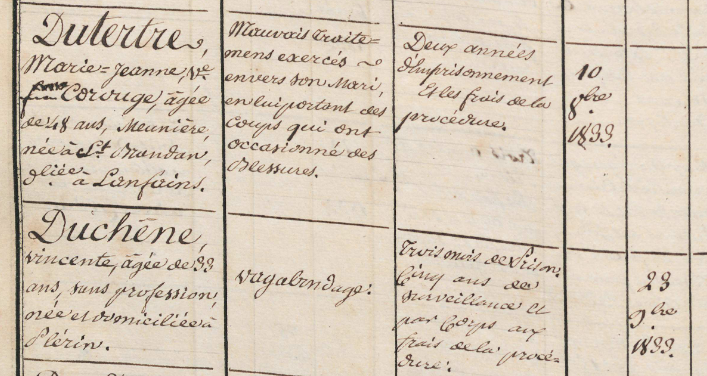 Dutertre,
Marie=Jeanne, Ve
Corouge, âgée
de 48 ans, Meunière,
née à St. Brandan,
d.liée à Lanfains.
Mauvais Traite=
mens exercés
envers son Mari,
en lui portant des
Coups qui ont
occasionné des
Blessures.
Deux années
d'Emprisonnement
Et les frais de la
procédure.
10
8bre
1833.
Duchêne,
Vincente, âgée de 33
ans, sans profession,
née et domiciliée à
Plérin.
vagabondage.
Trois mois de Prison.
Cinq ans de
surveillance et
par Corps aux
frais de la procé-
dure.
23
9bre
1833.